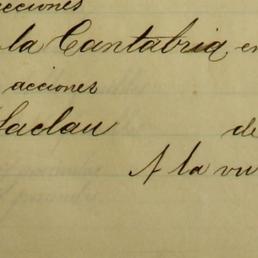 acciones
la Cantabria en
acciones
de
A la vu